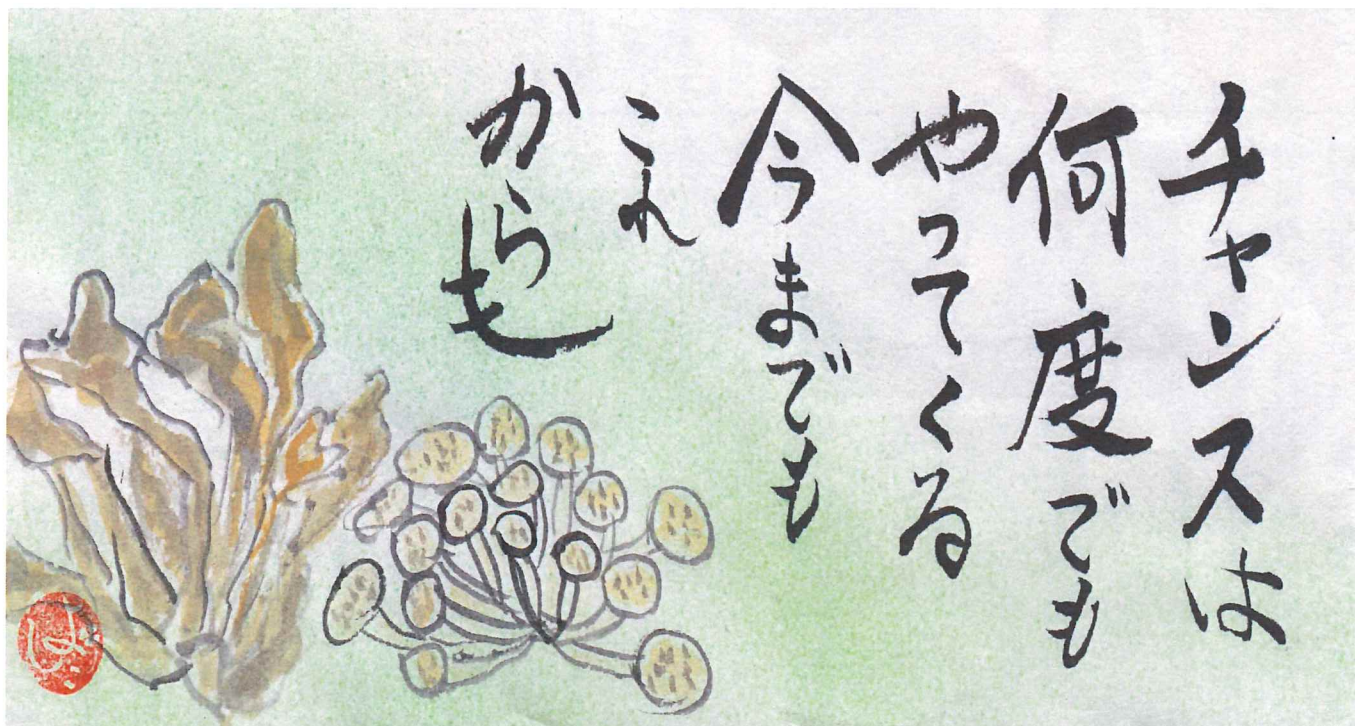 チャンスは
何度でも
やってくる
今までも
これ
からも